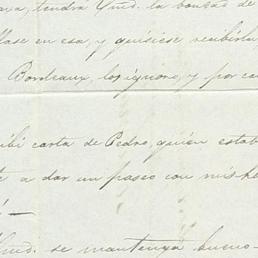 tendrá Umd. la bondad de
llase en esa, y quisiese recibirla
Bordeaux, lo ignoro, y por ca
cibi carta de Pedro, quién estab
a dar un paseo con mis he
Umd. se mantenga bueno